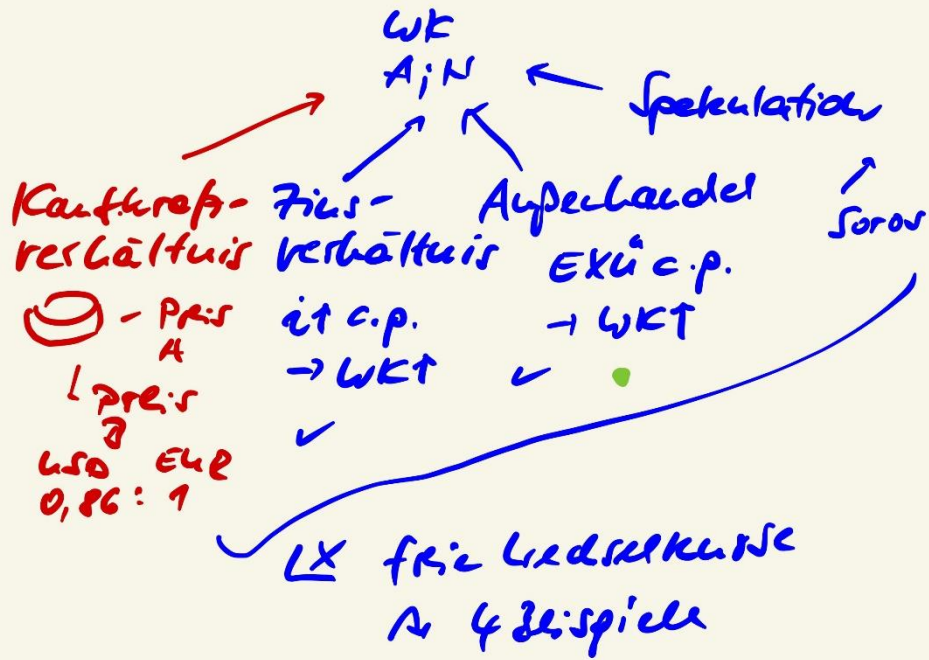 WK
A;N
Spekulation
Soros
Kaufkraft-
verhältnis
- Preis
A
Preis
B
USD EUR
0,86 : 1
Zins-
verhältnis
i↑ c.p.
→ WK↑
✓
Außenhandel
EXÜ c.p.
→ WK↑
✓
freie Wechselkurse
4 Beispiele